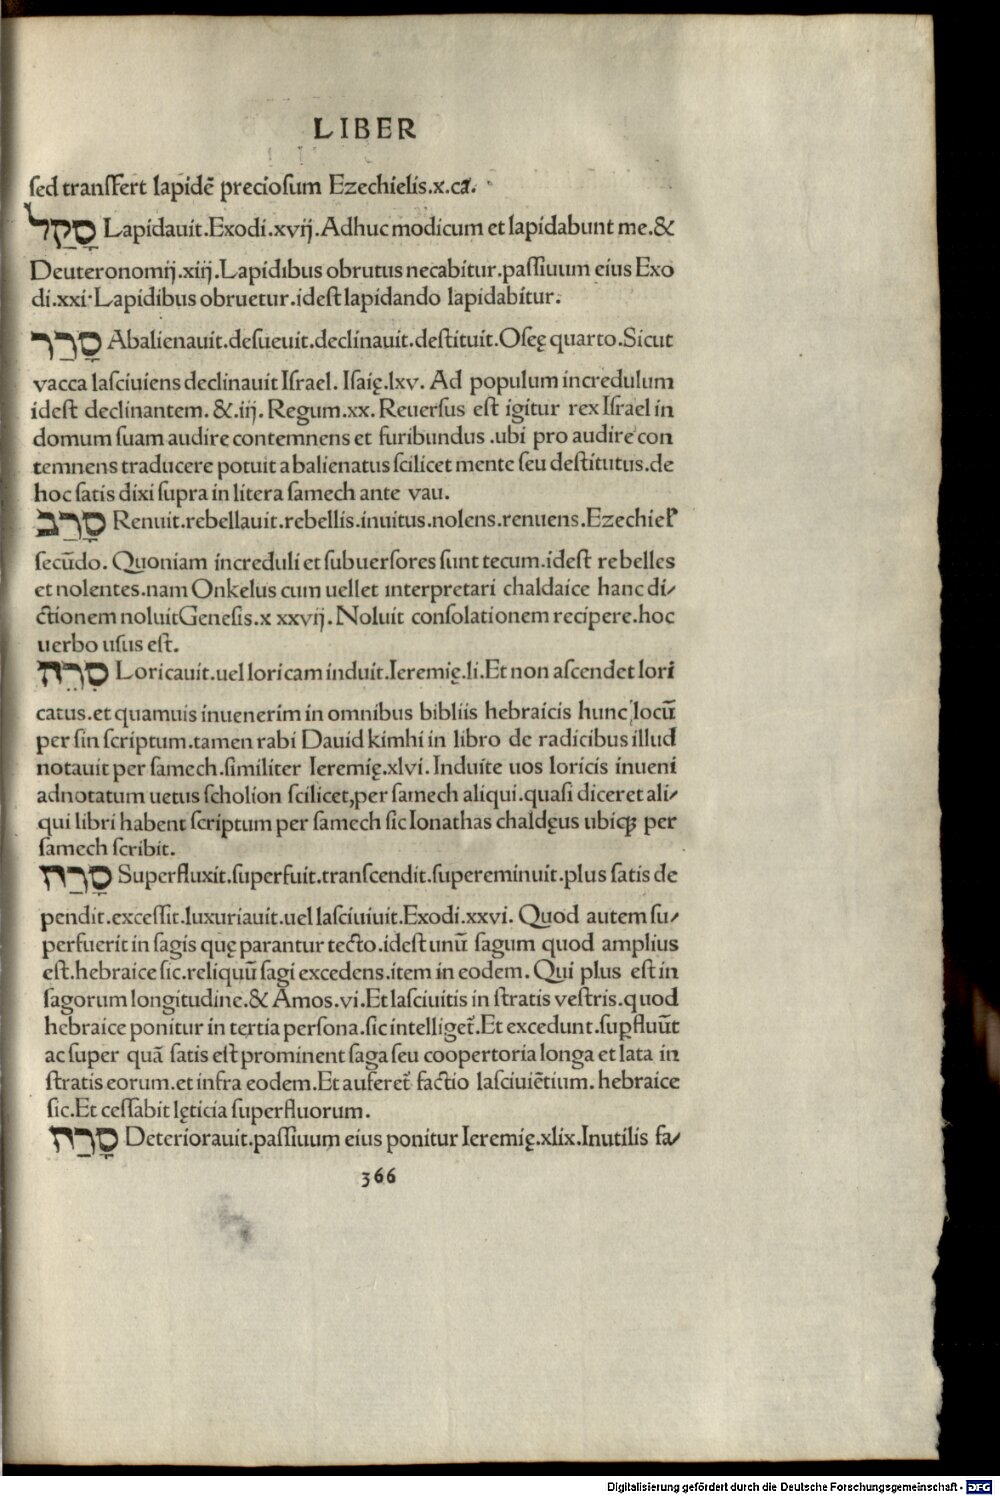 LIBER
sed transfert lapidē preciosum Ezechielis.x.ca.
סָקַל Lapidauit.Exodi.xvij.Adhuc modicum et lapidabunt me.&
Deuteronomij.xiij.Lapidibus obrutus necabitur.passiuum eius Exo
di.xxi.Lapidibus obruetur.idest lapidando lapidabitur.
סָרַר Abalienauit.desueuit.declinauit.destituit.Oseę quarto.Sicut
vacca lasciuiens declinauit Israel. Isaię.lxv. Ad populum incredulum
idest declinantem. &.iij. Regum.xx. Reuersus est igitur rex Israel in
domum suam audire contemnens et furibundus .ubi pro audire con
temnens traducere potuit abalienatus scilicet mente seu destitutus.de
hoc satis dixi supra in litera samech ante vau.
סָרַב Renuit.rebellauit.rebellis.inuitus.nolens.renuens.Ezechiel
secūdo. Quoniam increduli et subuersores sunt tecum.idest rebelles
et nolentes.nam Onkelus cum uellet interpretari chaldaice hanc di/
ctionem noluit Genesis.xxxvij. Noluit consolationem recipere.hoc
uerbo usus est.
סָרַה Loricauit.uel loricam induit.Ieremię.li.Et non ascendet lori
catus.et quamuis inuenerim in omnibus bibliis hebraicis hunc locū
per sin scriptum.tamen rabi Dauid kimhi in libro de radicibus illud
notauit per samech.similiter Ieremię.xlvi.Induite uos loricis inueni
adnotatum uetus scholion scilicet,per samech aliqui.quasi diceret ali/
qui libri habent scriptum per samech sic Ionathas chaldęus ubiqꝫ per
samech scribit.
סָרַח Superfluxit.superfuit.transcendit.supereminuit.plus satis de
pendit.excessit.luxuriauit.uel lasciuiuit.Exodi.xxvi. Quod autem su/
perfuerit in sagis quę parantur tecto.idest unū sagum quod amplius
est.hebraice sic.reliquū sagi excedens.item in eodem. Qui plus est in
sagorum longitudine.& Amos.vi.Et lasciuitis in stratis vestris.quod
hebraice ponitur in tertia persona.sic intelliget̃.Et excedunt.suꝑfluūt
ac super quā satis est prominent saga seu coopertoria longa et lata in
stratis eorum.et infra eodem.Et auferet̃ factio lasciuiētium.hebraice
sic.Et cessabit lęticia superfluorum.
סָרַח Deteriorauit.passiuum eius ponitur Ieremię.xlix.Inutilis fa/
366
Digitalisierung gefördert durch die Deutsche Forschungsgemeinschaft - DFG